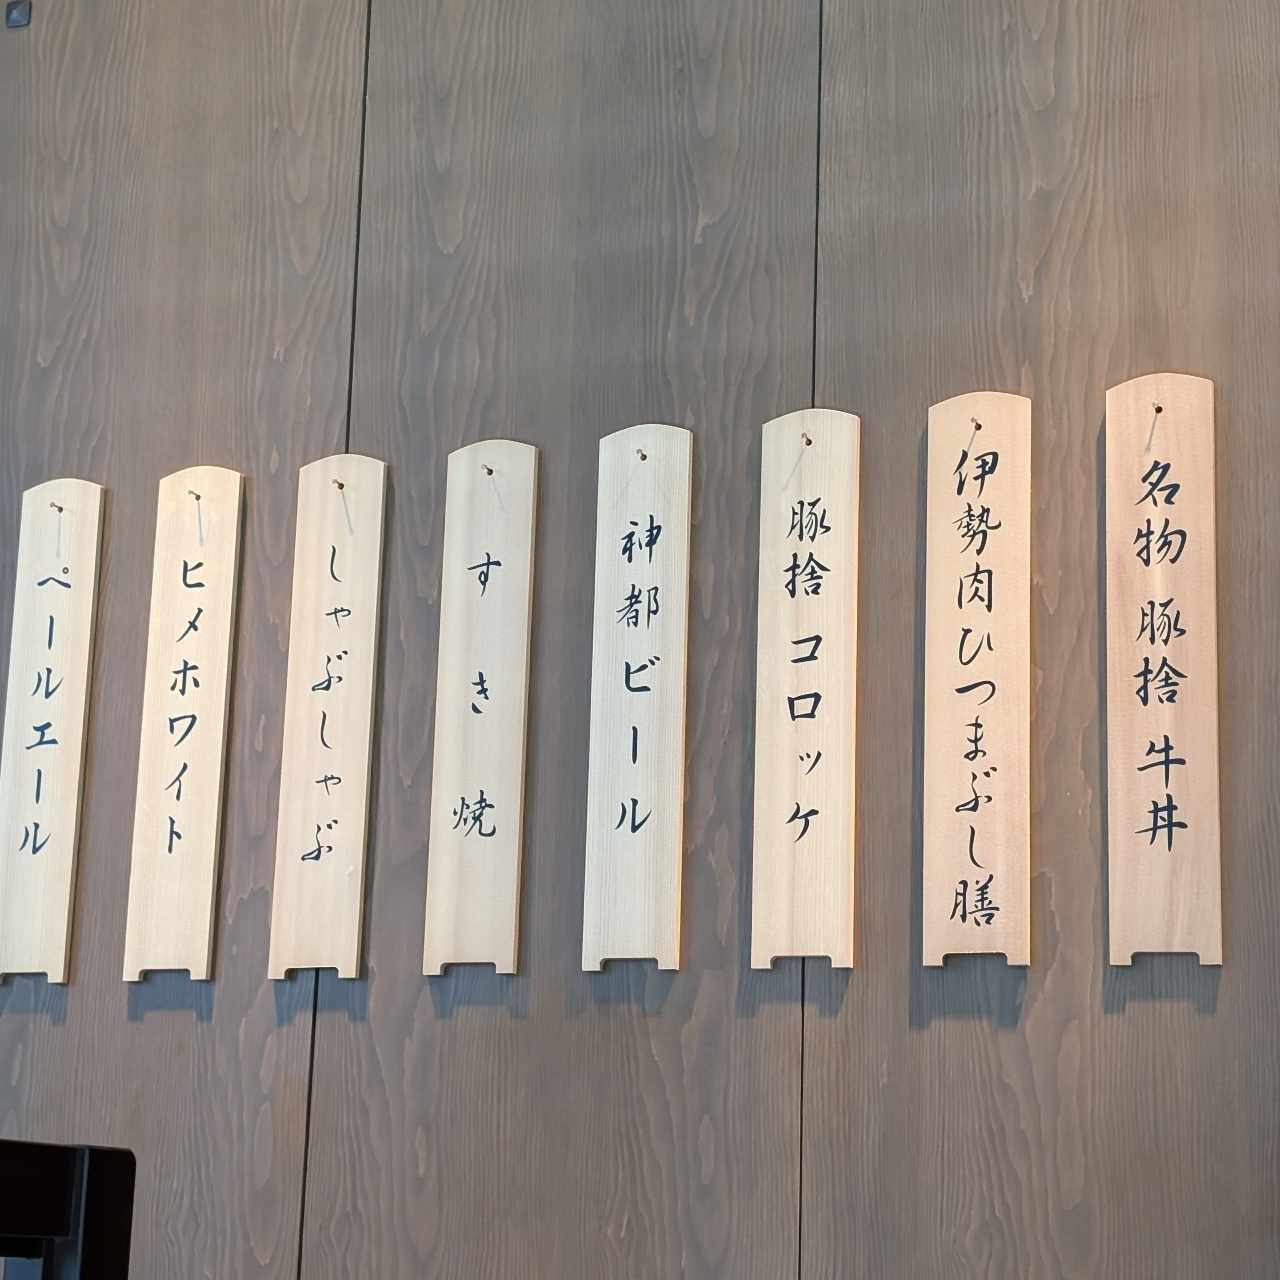 名物 豚捨 牛丼
伊勢肉ひつまぶし膳
豚捨 コロッケ
神都ビール
すき焼
しゃぶしゃぶ
ヒメホワイト
ペールエール